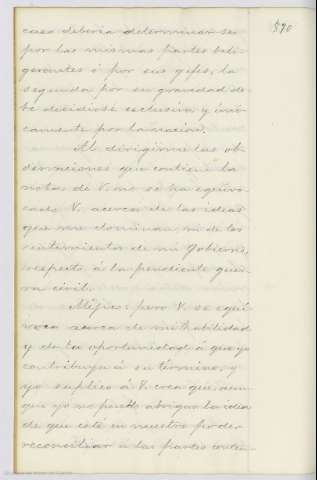 590
caso deberia determinarse
por las mismas partes beli-
gerantes ó por sus gefes, la
segunda por su gravedad de-
be decidirse exclusiva y úni-
camente por la nacion.
Al dirigirme las ob-
servaciones que contiene la
nota de V. no se ha equivo-
cado V. acerca de las ideas
que me dominan, ni de los
sentimientos de mi Gobierno,
respecto á la pendiente guer-
ra civil.
pero V. se equi-
voca acerca de mi habilidad
y de la oportunidad á que yo
contribuya á su término, y
yo suplico á V. crea que aun-
que yo no puedo abrigar la idea
de que esté en nuestro poder
reconciliar á las partes conten-